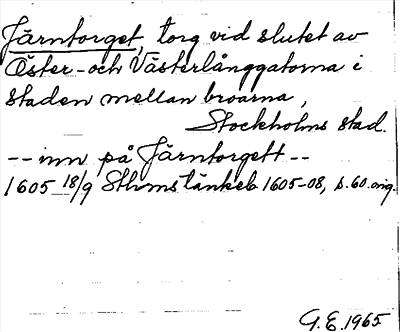 Järntorget, torg vid slutet av
Öster- och Västerlånggatorna i
staden mellan broarna,
Stockholms stad.
-- inn på Järntorgett --
1605 18/9 Sthms tänkeb. 1605-08, s. 60. orig.
G.E. 1965